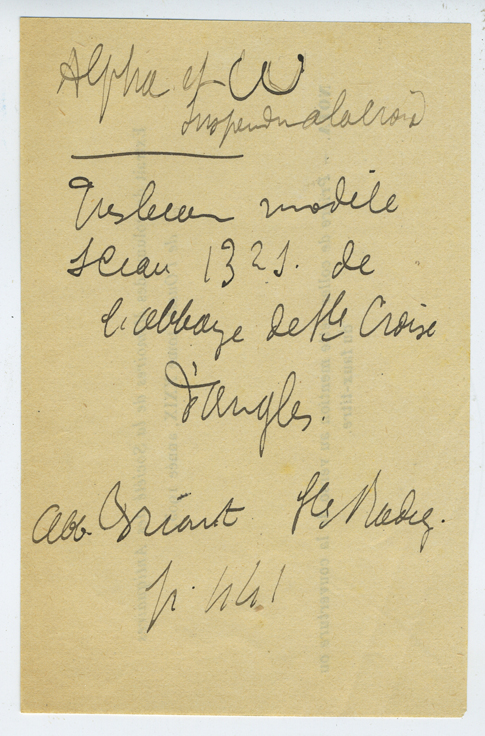 Alpha et ω
suspendu a la croix
Tres beau modèle
sceau 1321. de
l'abbaye de Ste Croise
d'Angles.
Abb. Briant Ste Radeg.
p. 441